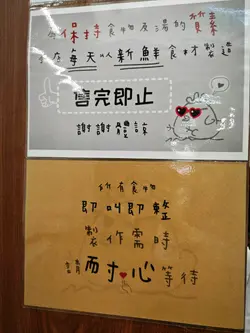 為保持食物及湯的質素
我在每天以新鮮食材製造
售完即止
謝謝體諒
所有食物
即叫即整
製作需時
請耐心等待